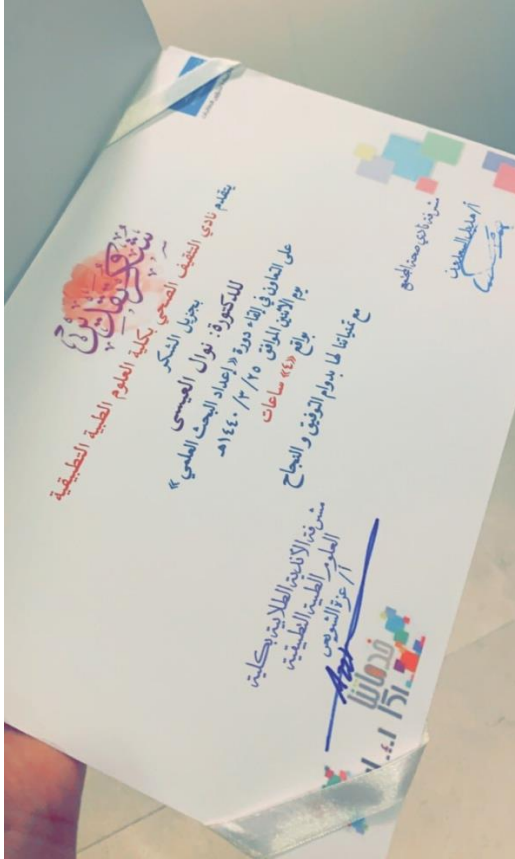 شكر وتقدير
يتقدم نادي التثقيف الصحي بكلية العلوم الطبية التطبيقية
بجزيل الشكر
للدكتورة: نوال العيسى
على التعاون في إلقاء دورة « إعداد البحث العلمي »
يوم الاثنين الموافق ١٤٤٠/٣/٢٥هـ
بواقع «٤» ساعات
مع تمنياتنا لها بدوام التوفيق و النجاح
مشرفة نادي صحة المجتمع
مشرفة الأندية الطلابية بكلية
العلوم الطبية التطبيقية
أ/ عزة الشويعي